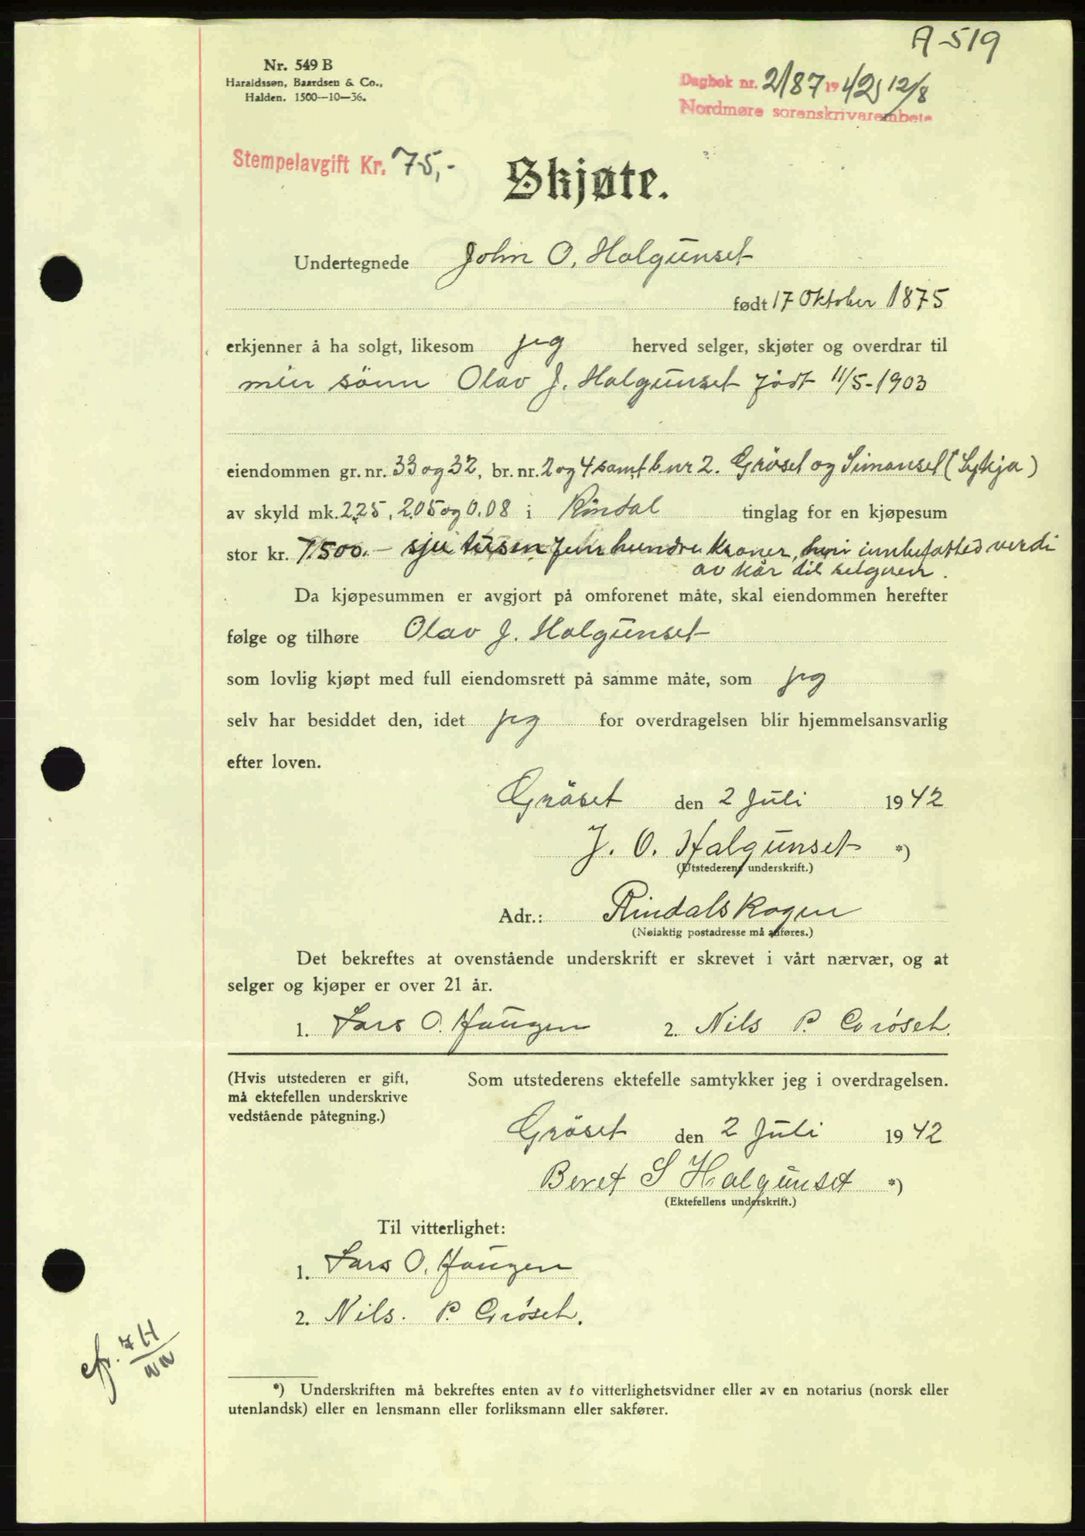 A-519
Nr. 549 B
Haraldssøn, Baardsen & Co.,
Halden. 1500—10—36.
Dagbok nr. 2187 1942 12/8
Nordmøre sorenskrivarembete
Stempelavgift Kr. 75,-
Skjøte.
Undertegnede John O. Halgunset
født 17 Oktober 1875
erkjenner å ha solgt, likesom jeg herved selger, skjøter og overdrar til
min sönn Olav J. Halgunset född 11/5-1903
eiendommen gr. nr. 33 og 32, br. nr. 2 og 4 samt b. nr 2. Gröset og Simonset (Lykja)
av skyld mk. 2.25, 2.05 og 0.08 i Rindal tinglag for en kjøpesum
stor kr. 7.500.- sju tusen fem hundre kroner, heri innbefatted verdi
av kår til selgeren.
Da kjøpesummen er avgjort på omforenet måte, skal eiendommen herefter
følge og tilhøre Olav J. Halgunset
som lovlig kjøpt med full eiendomsrett på samme måte, som jeg
selv har besiddet den, idet jeg for overdragelsen blir hjemmelsansvarlig
efter loven.
Gröset den 2 Juli 1942
J. O. Halgunset *)
(Utstederens underskrift.)
Adr.: Rindalskogen
(Nøiaktig postadresse må anføres.)
Det bekreftes at ovenstående underskrift er skrevet i vårt nærvær, og at
selger og kjøper er over 21 år.
1. Lars O. Haugen 2. Nils P. Grøset.
(Hvis utstederen er gift,
må ektefellen underskrive
vedstående påtegning.)
Som utstederens ektefelle samtykker jeg i overdragelsen.
Gröset den 2 Juli 1942
Beret S Halgunset *)
(Ektefellens underskrift.)
Til vitterlighet:
1. Lars O. Haugen
2. Nils. P. Grøset.
*) Underskriften må bekreftes enten av to vitterlighetsvidner eller av en notarius (norsk eller
utenlandsk) eller en lensmann eller forliksmann eller sakfører.